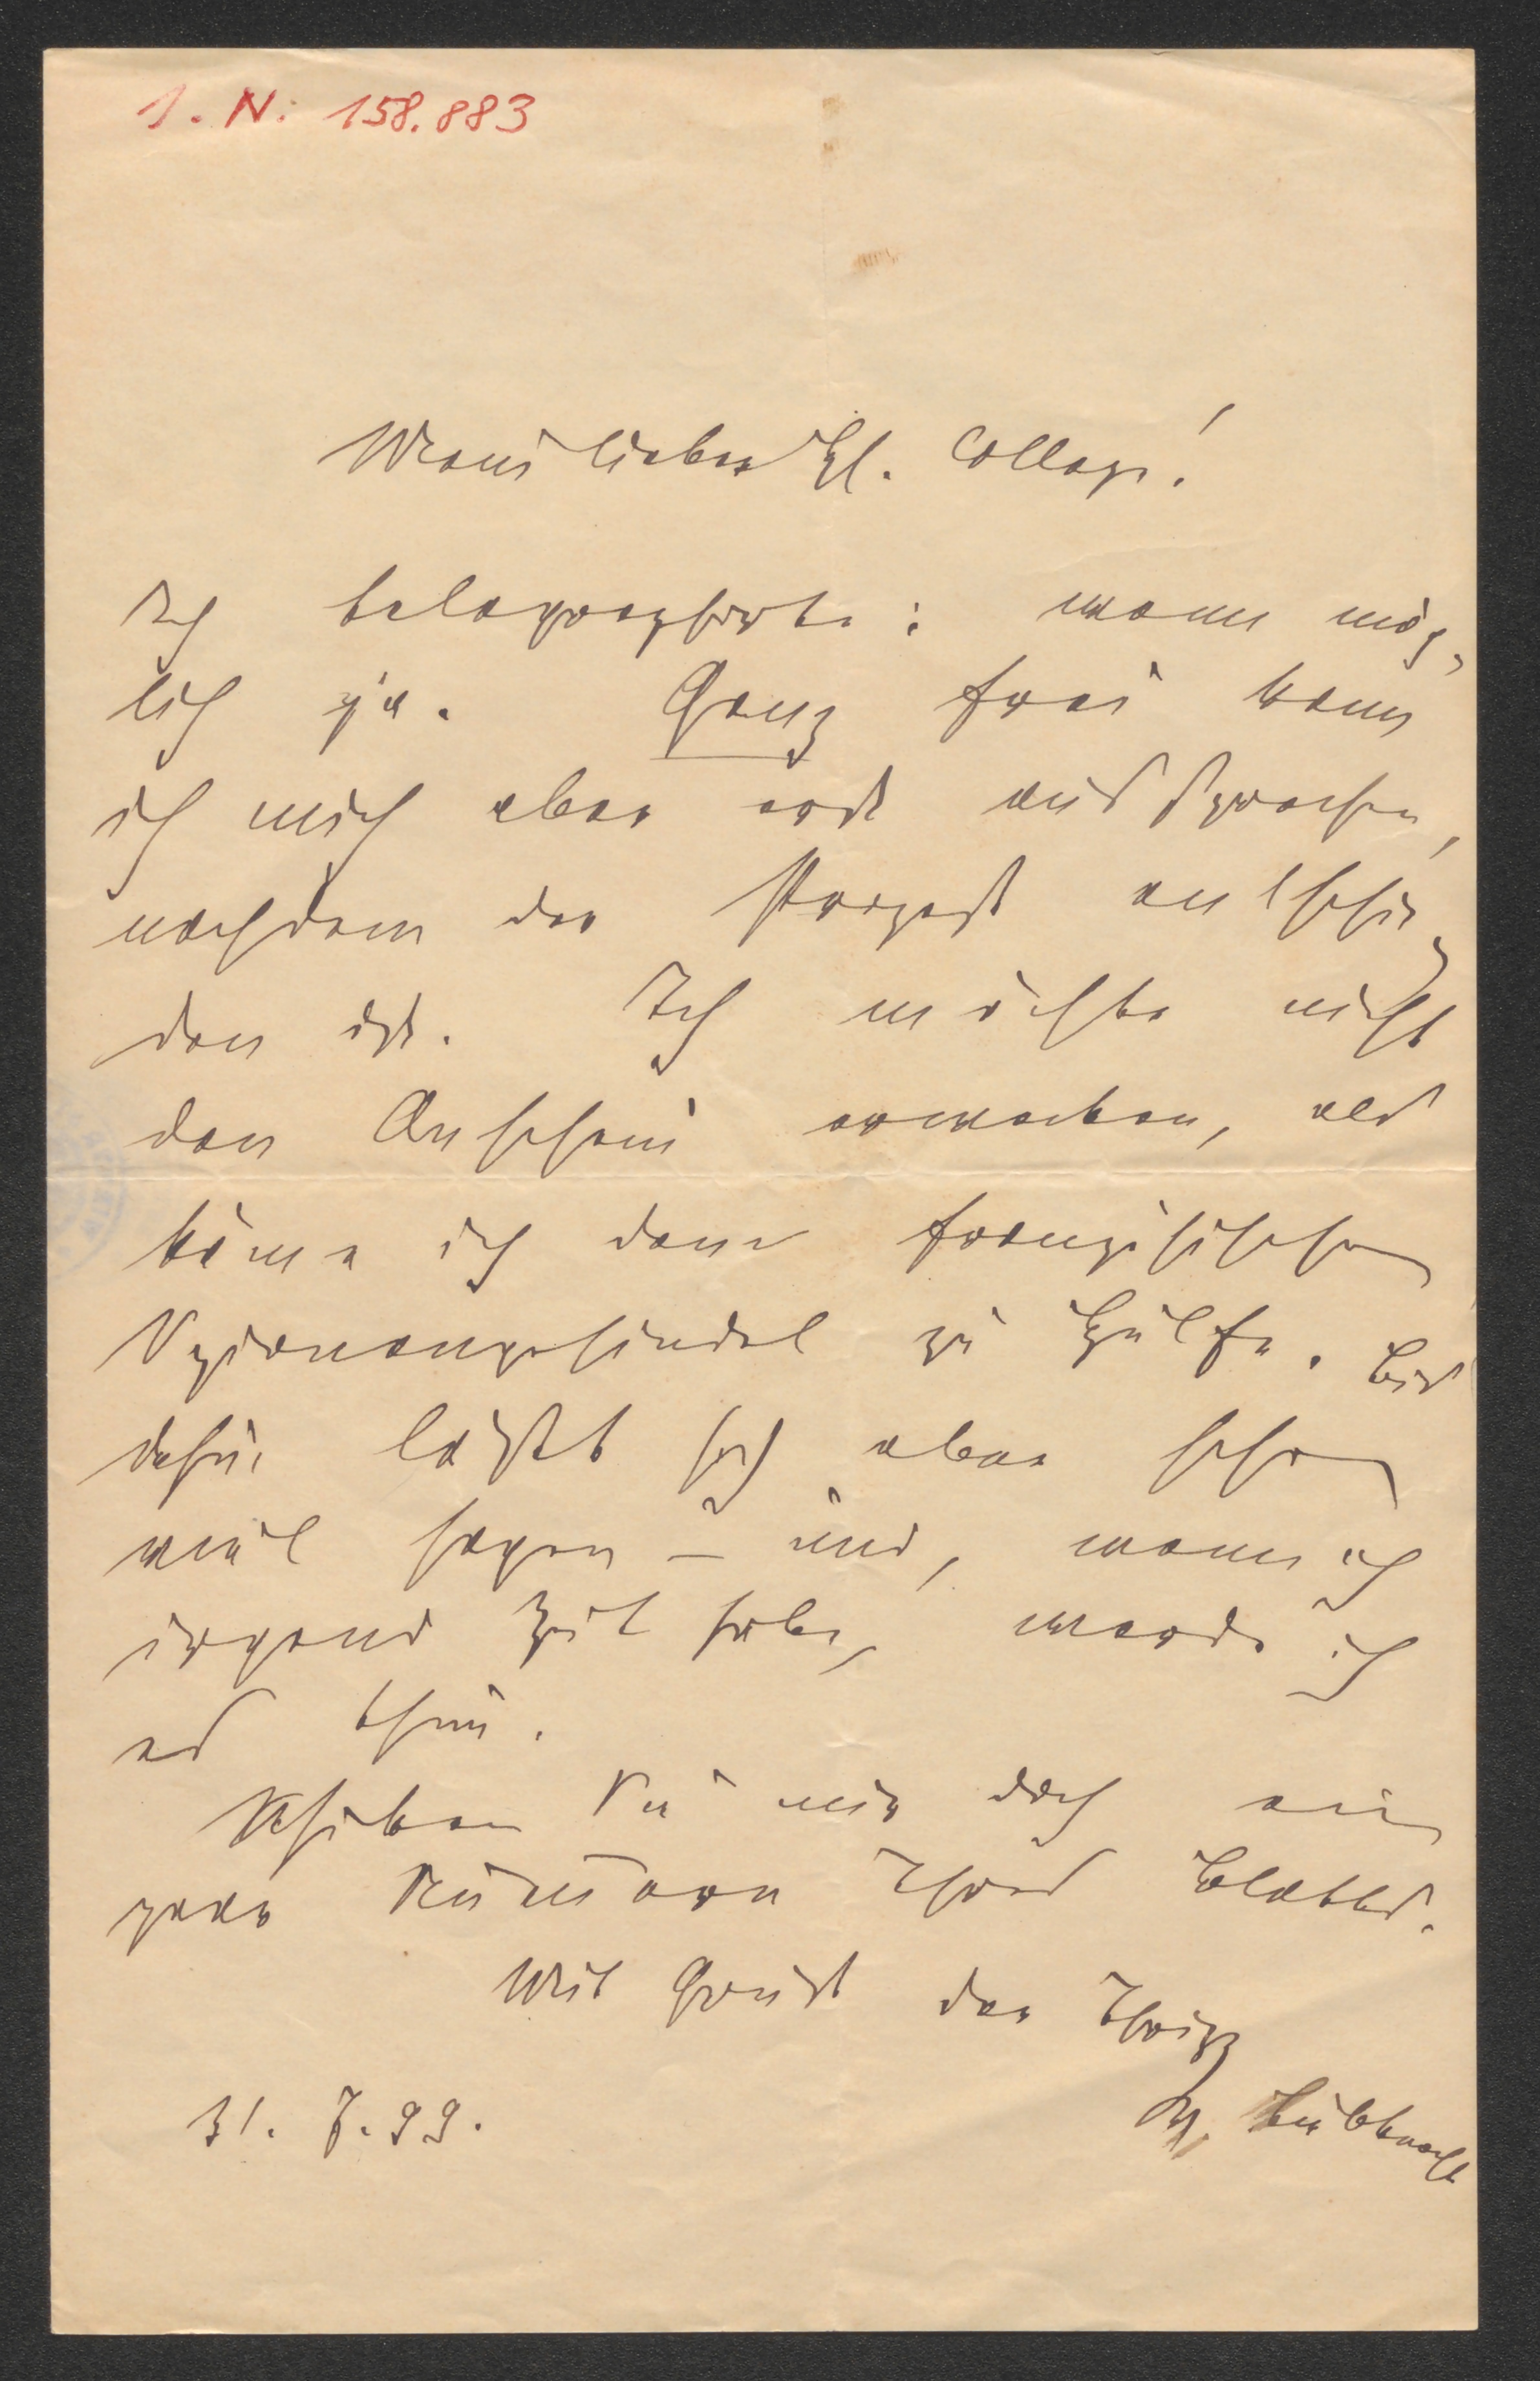 I. N. 158.883
Mein lieber Hr. College!
Ich telegraphirte: wenn mög-
lich ja. Ganz frei kann
ich mich aber erst aussprechen,
nachdem der Prozeß entschie-
den ist. Ich möchte nicht
den Anschein erwecken, als
käme ich dem französischen
Spionengesindel zu Hülfe. Bis
dahin läßt sich aber schon
viel sagen – und, wenn ich
irgend Zeit habe, werde ich
es thun.
Schicken Sie mir doch ein
paar Nummern Ihres Blattes.
Mit Gruß der Ihrige
W. Liebknecht
31. 7. 99.